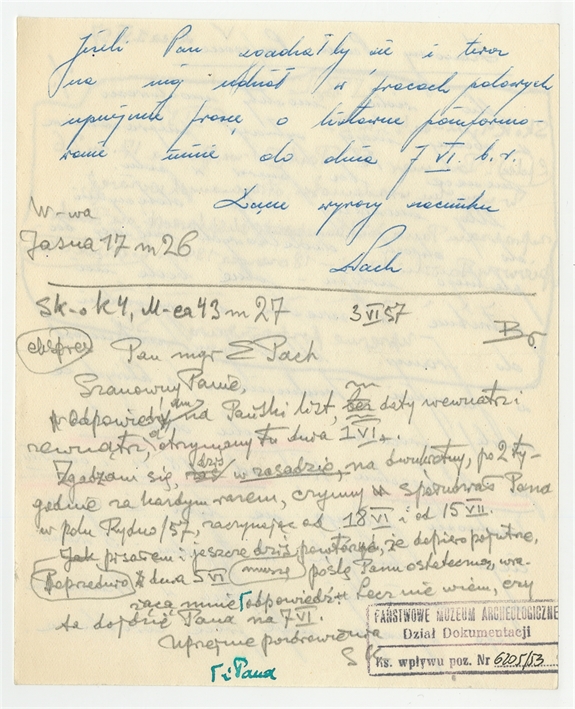 Jeżeli Pan zgadzałby się i teraz
na mój udział w pracach polowych
uprzejmie proszę o listowne poinformo-
wanie mnie do dnia 7 VI. b.r.
Łączę wyrazy szacunku
W-wa
Jasna 17 m 26
Pach
Sk-ok 4, M-ca 43 m 27
3 VI 57
Bo.
ekspres
Pan mgr Pach
Szanowny Panie,
odpowiedź na Pański list, bez daty wewnątrz i
zewnątrz, otrzymany tu dnia 1 VI.
Zgadzam się, dziś w zasadzie, na dwukrotny, po 2 ty-
godnie za każdym razem, czynny Pana
w polu Rydno/57, zaczynając od 18 VI i od 15 VII.
Jak pisałem i jeszcze dziś powtórzę, że dopiero pojutrze,
Poprzednio dnia 5 VI muszę posłę Panu ostateczną, wią-
żącą mnie odpowiedź. Lecz nie wiem, czy
ta dojdzie Pana na 7 VI.
Uprzejme pozdrowienia
S K
i Pana
PAŃSTWOWE MUZEUM ARCHEOLOGICZNE
Dział Dokumentacji
Ks. wpływu poz. Nr 6205/53